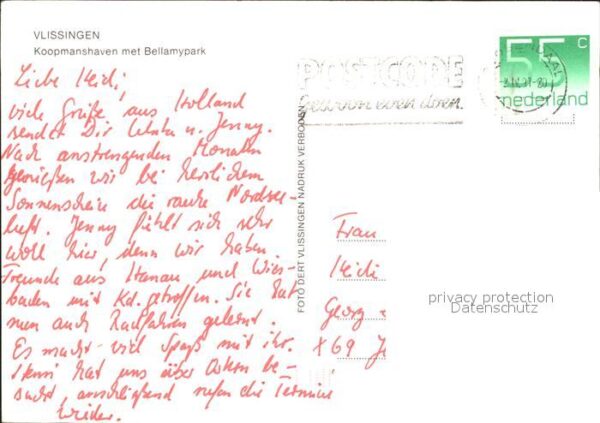 VLISSINGEN
Koopmanshaven met Bellamypark
Liebe Heidi,
viele Grüße aus Holland
sendet Dir u. Jenny.
Nach anstrengenden Monaten
genießen wir bei herrlichem
Sonnenschein die rauhe Nordsee-
luft. Jenny fühlt sich sehr
wohl hier, denn wir haben
Freunde aus Hanau und Wies-
baden mit Kd. getroffen. Sie hat
nun auch Radfahren gelernt.
Es macht viel Spaß mit ihr.
Henri hat uns über Ostern be-
sucht, anschließend rufen die Termine
wieder.
FOTO DERT VLISSINGEN NADRUK VERBODEN
POSTCODE
gewoon even doen.
55 c
nederland
Frau
Heidi
Georg
X69 Je
privacy protection
Datenschutz